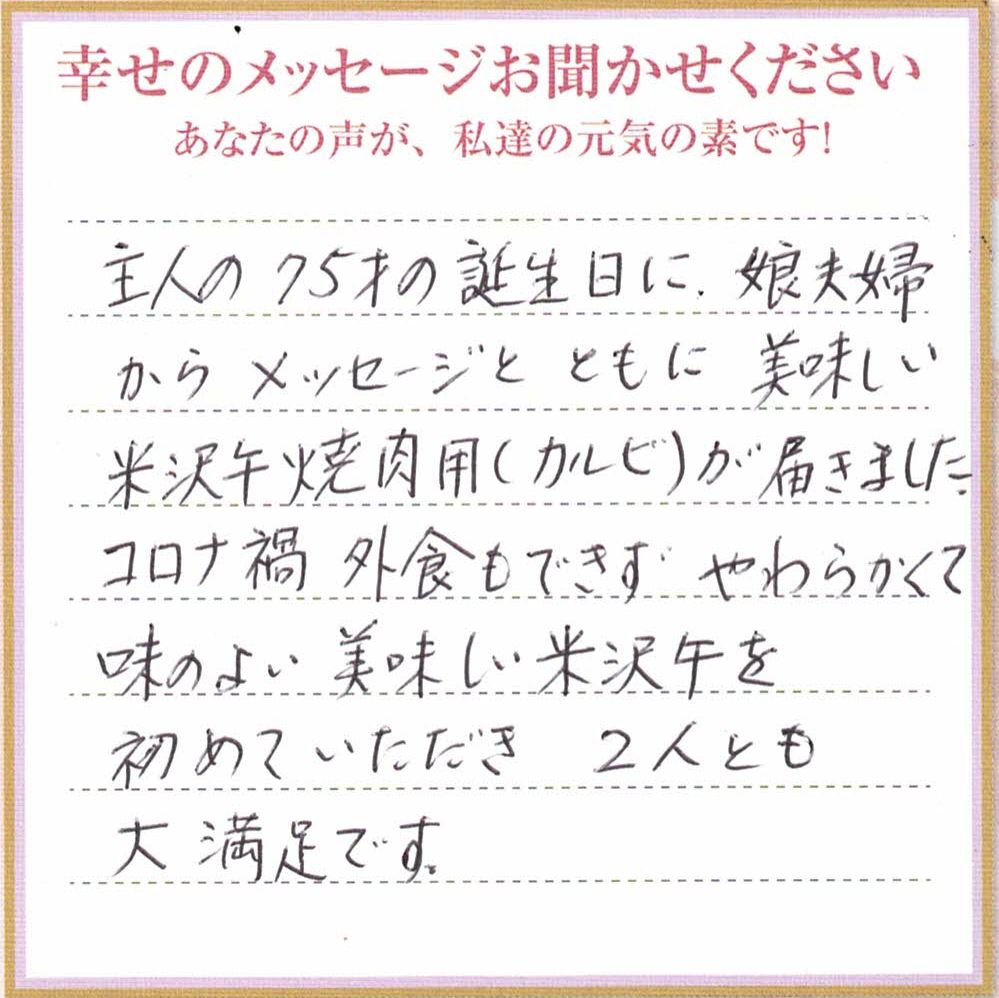 幸せのメッセージお聞かせください
あなたの声が、私達の元気の素です!
主人の75才の誕生日に、娘夫婦
からメッセージと ともに 美味しい
米沢牛焼肉用(カルビ)が届きました。
コロナ禍 外食もできず やわらかくて
味のよい 美味しい米沢牛を
初めていただき 2人とも
大満足です。